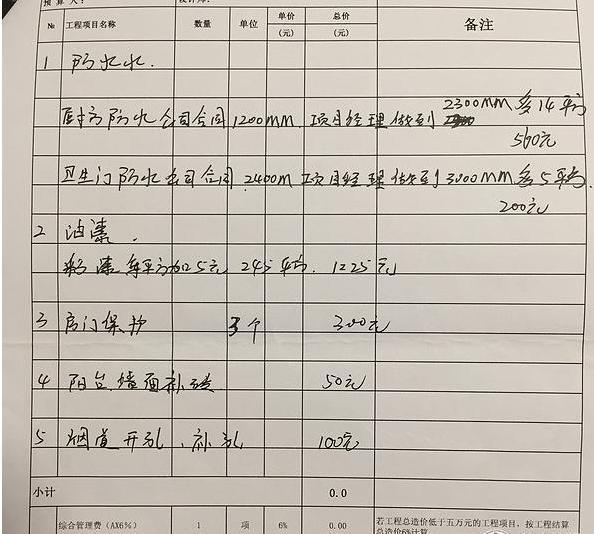 预 算 人:
设计师:
№ 工程项目名称 数量 单位 单价(元) 总价(元) 备注
1 防水水.
厨方防水公司合同1200mm.项目经理做到 2300mm多14平方
560元
卫生门防水公司合同2400m 项目经理做到3000mm多5平方.
200元
2 油漆.
漆每平方加5元 245平方. 1225元
3 房门保护 3个 300元
4 阳台墙面补 50元
5 烟道开孔、补孔 100元
小计 0.0
综合管理费(AX6%) 1 项 6% 0.00 若工程总造价低于五万元的工程项目,按工程结算
总造价6%计算